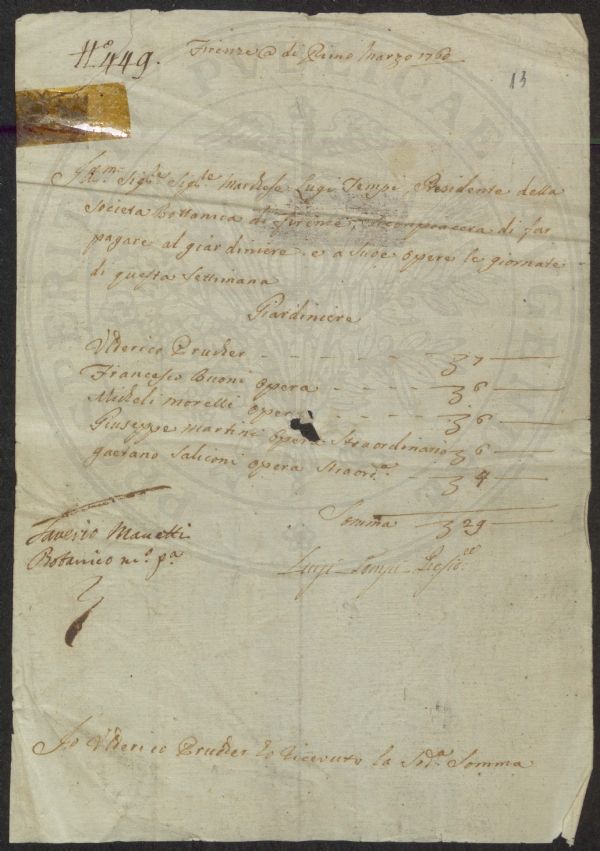 N.o 449.
Firenze @ di Primo Marzo 1760
13
Ill.mo Sig.re Sig.re Marchese Luigi Tempi, Presidente della
Societa Bottanica di Firenze, si compiacera di far
pagare al giardiniere e a sue opere le giornate
di questa Settimana
Giardiniere
Ulderico Prucker - - - - 7
Francesco Buoni opera - - - - 6
Micheli Morelli opera - - 6
Giuseppe Martini opera Straordinario 6
gaetano Saliconi opera Straord.a - 4
Somma 29
Saverio Manetti
Botanico m.o p.a
Luigi Tempi Presid.te
Io Ulderico Prucker ho ricevuto la Sod.a Somma